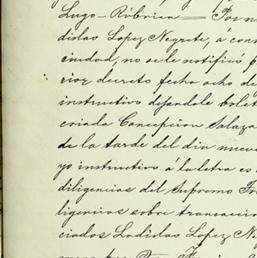 Lugo-Rúbrica= Por no
dislao Lopez Negrete, a cons
ciudad, no se le notificó p
rior decreto fecha ocho de
instructivo dejandole bolet
criada Concepcion Salaza
de la tarde del dia nueve
yo instructivo á la letra es
diligencias del Supremo Tri
ligencias sobre transaccio
ciados Ladislao Lopez Ne